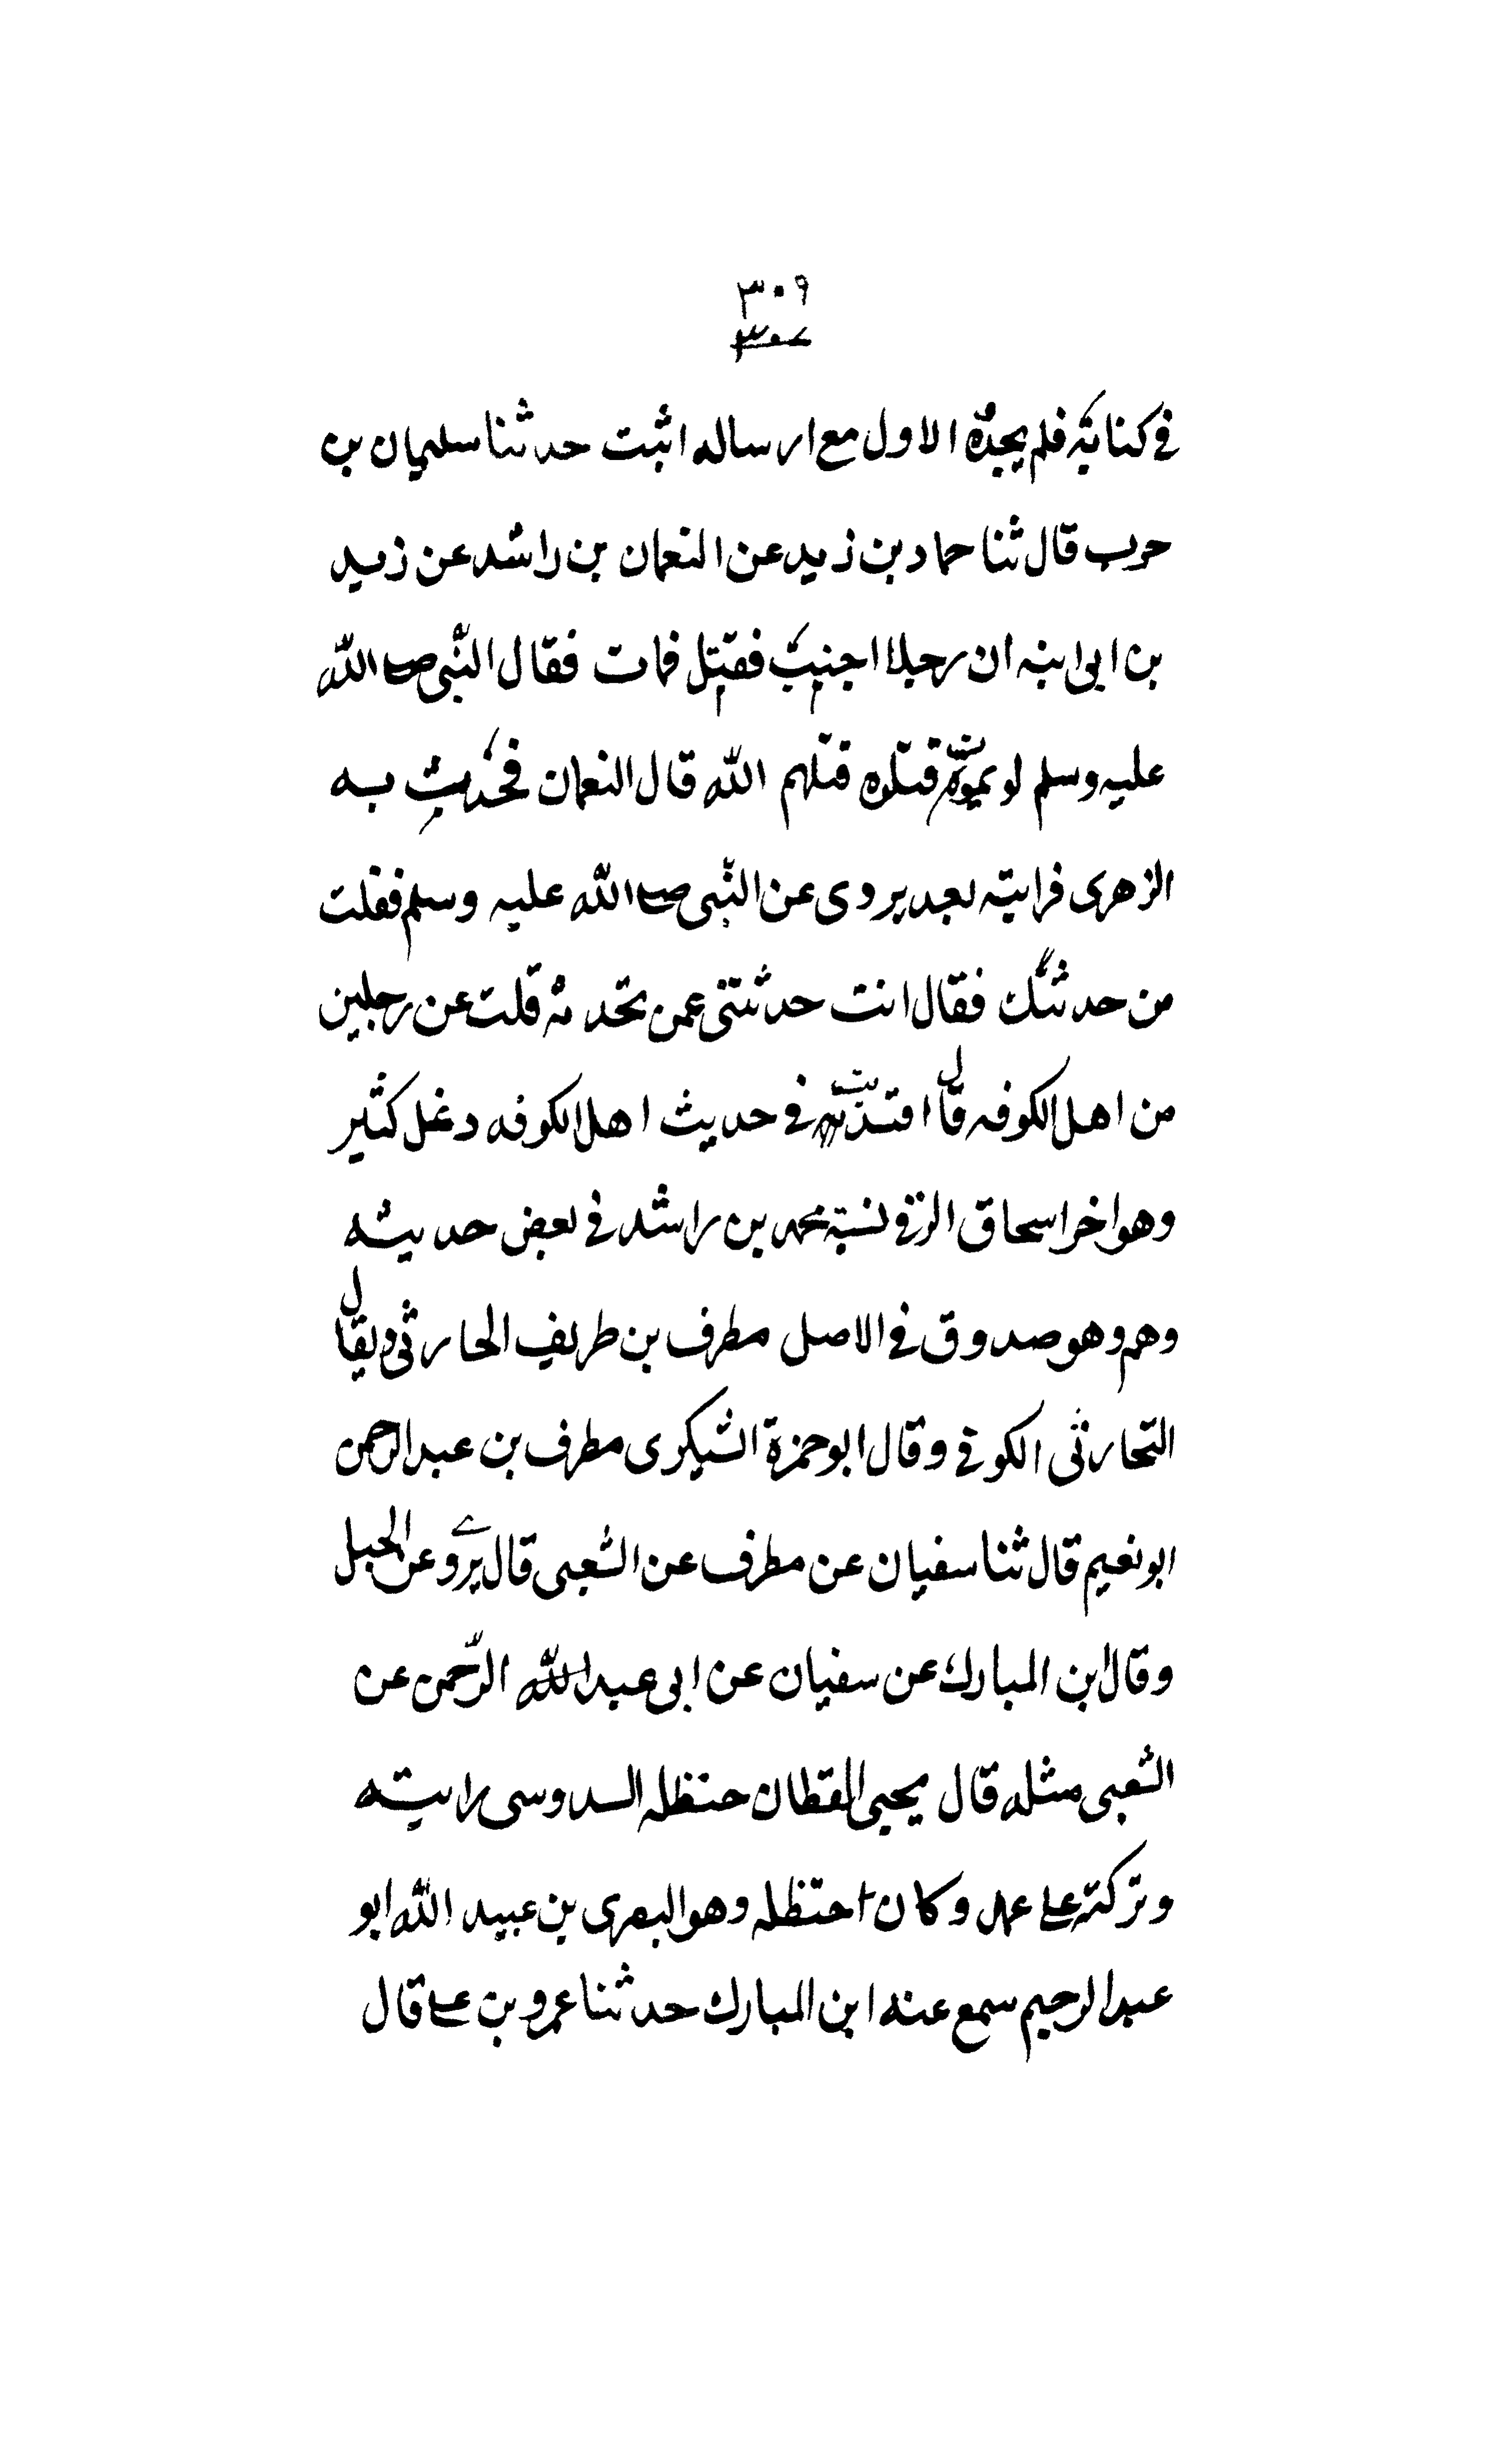 ٣٠٩
٣٠٧
في كتابة فلم يجده الاول مع ارساله اثبت حدثنا سليمان بن
حرب قال ثنا حماد بن زيد عن النعمان بن راشد عن زيد
بن ابي انيسه ان رجلا اجنب فغسل فمات فقال النبي صلى الله
عليه وسلم لو يمموه قتلوه قتلهم الله قال النعمان فحدثت به
الزهري فرايته بعد يروي عن النبي صلى الله عليه وسلم فقلت
من حدثك فقال انت حدثتني عمن تحدثه قلت عن رجلين
من اهل الكوفه قال افسدته في حديث اهل الكوفه دغل كثير
وهو اخو اسحاق الرقي نسبة محمد بن راشد في بعض حديثه
وهم وهو صدوق في الاصل مطرف بن طريف الحارثي ويقال
الحارثي الكوفي وقال ابو حمزة الشيكري مطرف بن عبد الرحمن
ابو نعيم قال ثنا سفيان عن مطرف عن الشعبي قال يروي عن الحبل
وقال ابن المبارك عن سفيان عن ابي عبد الله الرحمن عن
الشعبي مثله قال يحيى القطان حنظله السدوسي رايته
وتركته على عمد وكان حنظله وهو البصري بن عبيد الله ابو
عبد الرحيم سمع عنه ابن المبارك حدثنا عمرو بن على قال